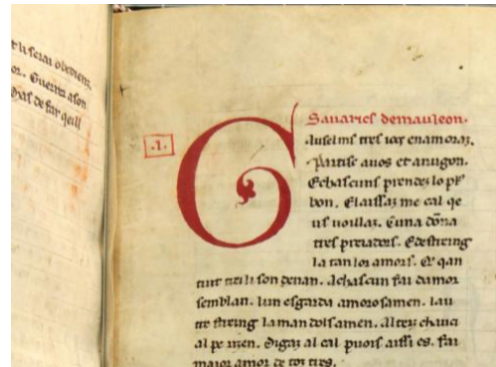 t li serai obedienz
or. Guerra ason
Mas de far qeill
.I.
Savarics demauleon.
Gauselms tres iox enamoraz.
Partisc auos et anugon.
E chascuns prendez lo plus
bon. E laissaz me cal qe
us uoillaz. E una dõna
tres preiadors. E destreing
la tan lor amors. Et qan
tuit trei li son denan. A chascun fai damor
semblan. lun esgarda amorosamen. lau
tre streing la man dolsamen. Al terz chauci
al pe rizen. Digaz al cal puois aissi es. fai
maior amor de toz tres.